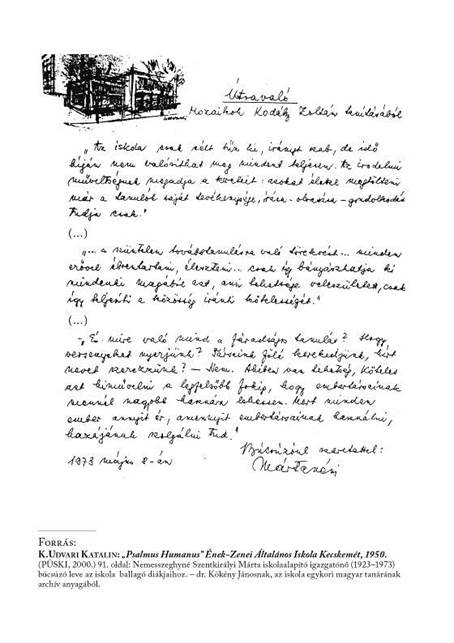 Útravaló
Mozaikok Kodály Zoltán tanításából
„Az iskola csak célt tűz ki, irányt szab, de idő
híján nem valósíthat meg mindent teljesen. Az irodalmi
műveltségnek megadja a kereteit: azokat élettel megtölteni
már a tanulók saját tevékenysége, órán - olvasása - gondolkodás
tudja csak."
(...)
„... a szüntelen továbbtanulásra való törekvést... minden
erővel ébrentartani, éleszteni... csak így bányászhatja ki
mindenki magából azt, ami lehetősége veleszületett, csak
így teljesíti a közösség iránti kötelességét."
(...)
„És mire való mind a fáradságos tanulás? Hogy
versenyeket nyerjünk? Társaink fölé kerekedjünk, hírt
nevet szerezzünk? – Nem. Akiben van tehetség, köteles
azt kiművelni a legfelsőbb fokig, hogy embertársainak
mennél nagyobb hasznára lehessen. Mert minden
ember annyit ér, amennyit embertársainak használni,
hazájának szolgálni tud."
Búcsúzóul szeretettel:
1973 május 8-án
Márta néni
FORRÁS:
K.UDVARI KATALIN: „Psalmus Humanus" Ének-Zenei Általános Iskola Kecskemét, 1950.
(PÜSKI, 2000.) 91. oldal: Nemesszeghyné Szentkirályi Márta iskolaalapító igazgatónő (1923–1973)
búcsúzó leve az iskola ballagó diákjaihoz. – dr. Kökény Jánosnak, az iskola egykori magyar tanárának
archív anyagából.